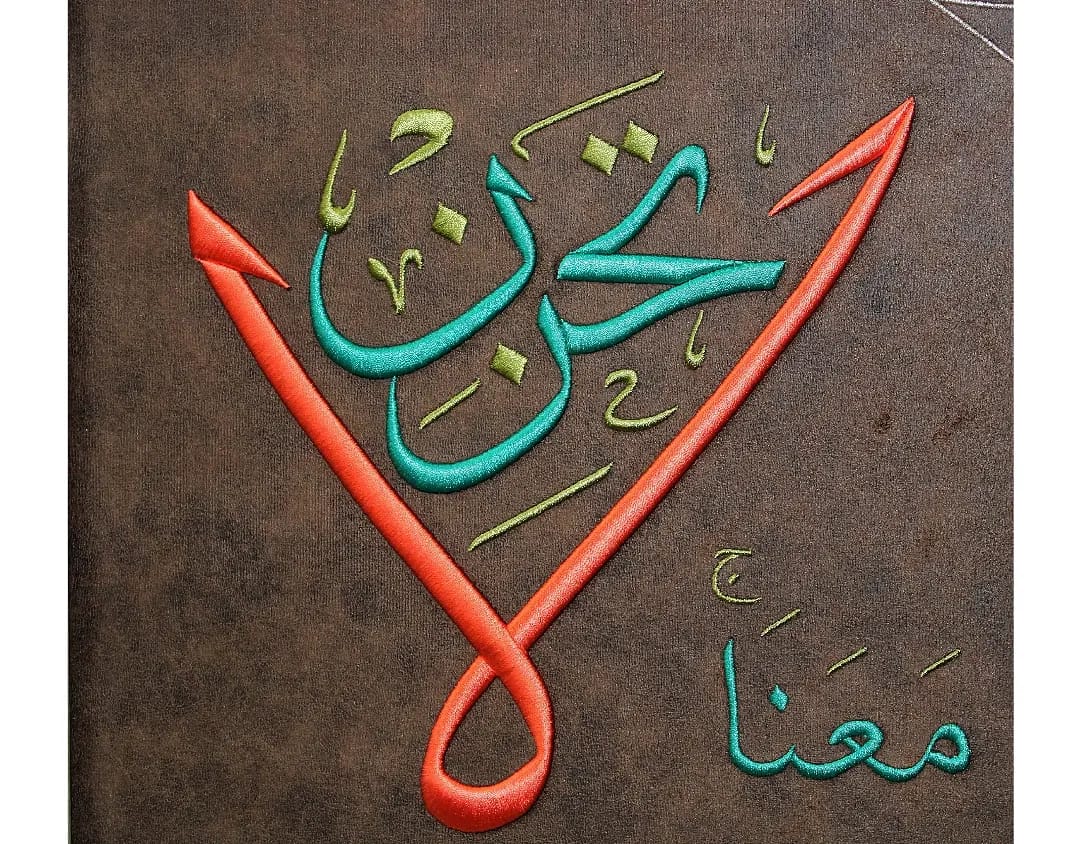 لا تحزن
مَعَنَاۚ